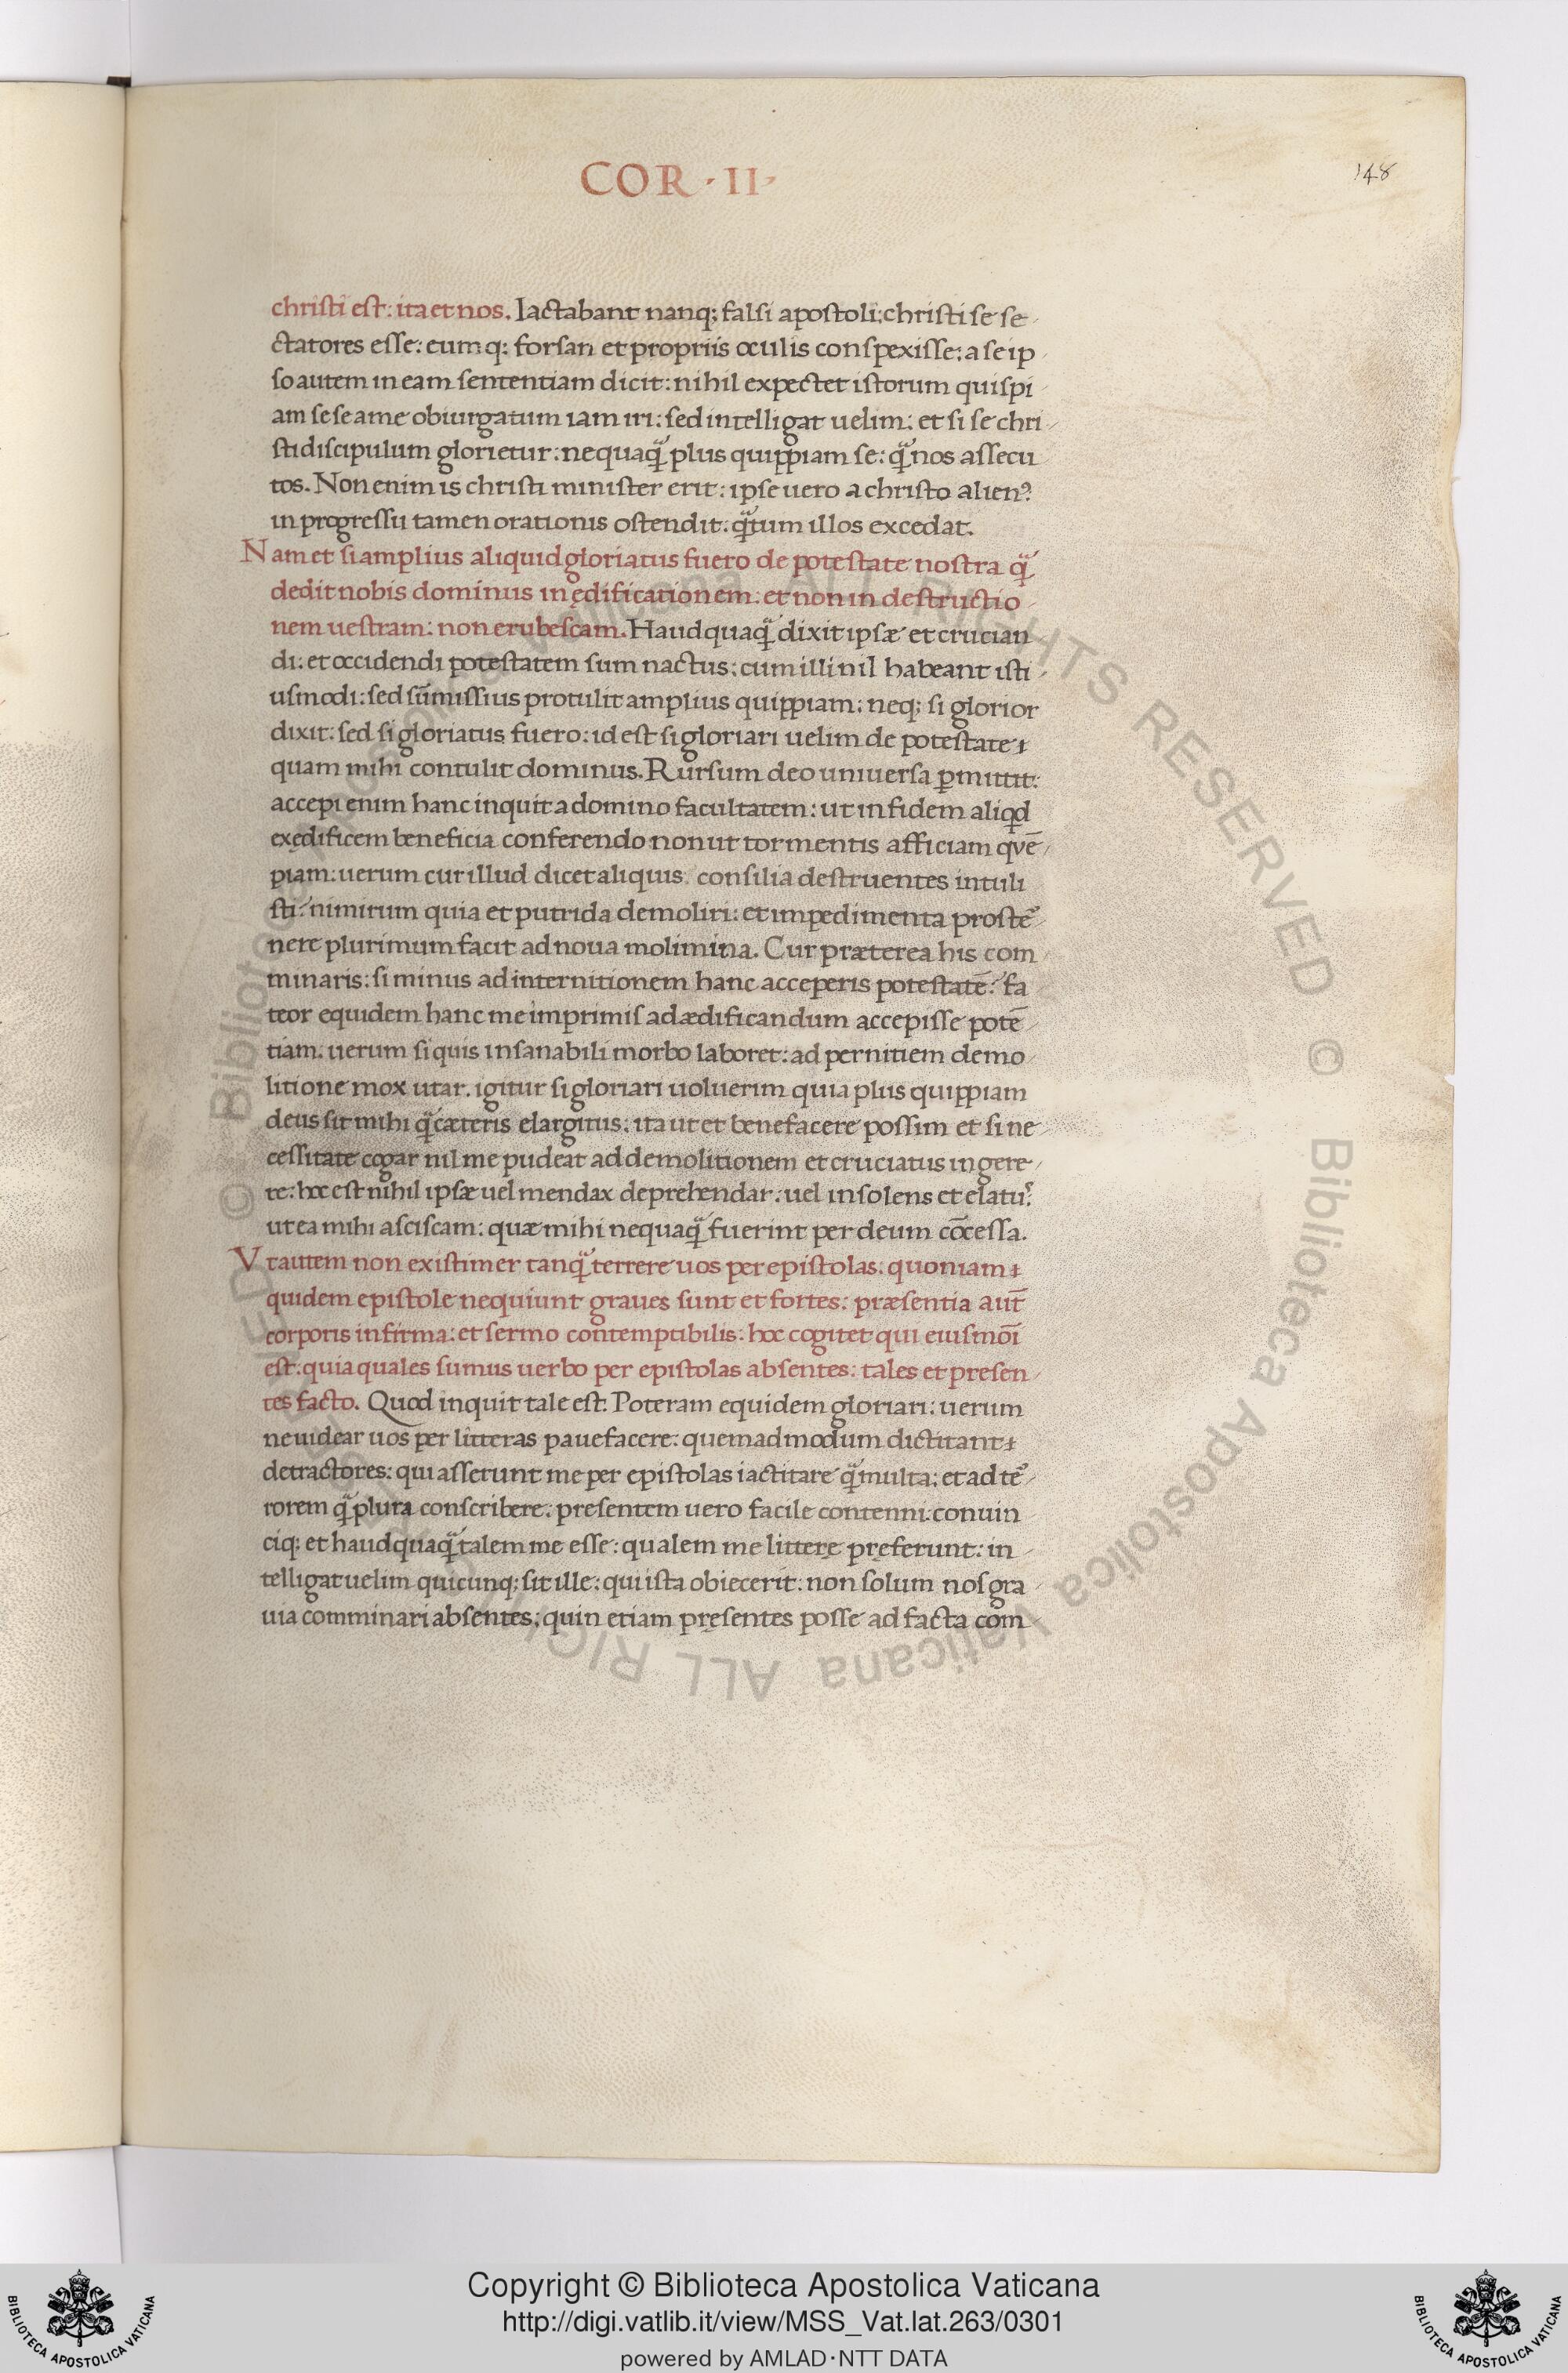 COR · II ·
148
christi est: ita et nos. Iactabant nanq; falsi apostoli: christi se se-
ctatores esse: eumq; forsan et propriis oculis conspexisse: a se ip-
so autem in eam sententiam dicit: nihil expectet istorum quispi-
am sese a me obiurgatum iam iri: sed intelligat uelim: et si se chri-
sti discipulum glorietur: nequaq̃ plus quippiam se: q̃ nos assecu-
tos. Non enim is christi minister erit: ipse uero a christo alienꝰ:
in progressu tamen orationis ostendit: q̃tum illos excedat.
Nam et si amplius aliquid gloriatus fuero de potestate nostra q̃
dedit nobis dominus in ędificationem: et non in destructio-
nem uestram: non erubescam. Haud quaq̃ dixit ipsæ et crucian
di: et occidendi potestatem sum nactus: cum illi nil habeant isti-
usmodi: sed sũmissius protulit amplius quippiam: neq; si glorior
dixit: sed si gloriatus fuero: id est si gloriari uelim de potestate
quam mihi contulit dominus. Rursum deo uniuersa ꝑmittit:
accepi enim hanc inquit a domino facultatem: ut in fidem aliqd
exędificem beneficia conferendo non ut tormentis afficiam qvẽ-
piam: uerum cur illud dicet aliquis: consilia destruentes intuli
sti: nimirum quia et putrida demoliri: et impedimenta proster̉-
nere plurimum facit ad noua molimina. Cur præterea his com-
minaris: si minus ad internitionem hanc acceperis potestatẽ: fa
teor equidem hanc me imprimis ad ædificandum accepisse potẽ-
tiam: uerum si quis insanabili morbo laboret: ad pernitiem demo-
litione mox utar. igitur si gloriari uoluerim quia plus quippiam
deus sit mihi q̃ cæteris elargitus: ita ut et benefacere possim et si ne-
cessitate cogar nil me pudeat ad demolitionem et cruciatus ingere-
re: hoc est nihil ipsæ uel mendax deprehendar: uel insolens et elatuꝰ:
ut ea mihi asciscam: quæ mihi nequaq̃ fuerint per deum cõcessa.
Vt autem non existimer tanq̃ terrere uos per epistolas: quoniam
quidem epistole nequiunt graues sunt et fortes: præsentia aut̃
corporis infirma: et sermo contemptibilis: hoc cogitet qui eiusmõi
est: quia quales sumus uerbo per epistolas absentes: tales et presen-
tes facto. Quod inquit tale est. Poteram equidem gloriari: uerum
ne uidear uos per litteras pauefacere: quemadmodum dictitant
detractores: qui asserunt me per epistolas iactitare q̃ multa: et ad ter̉-
rorem q̃ plura conscribere: presentem uero facile contenni: conuin-
ciq; et haud quaq̃ talem me esse: qualem me litterę pręferunt: in-
telligat uelim quicunq; sit ille: qui ista obiecerit: non solum nos gra-
uia comminari absentes: quin etiam pręsentes posse ad facta com-
© Biblioteca Apostolica Vaticana ALL RIGHTS RESERVED © Biblioteca Apostolica Vaticana ALL RIGHTS RESERVED
Copyright © Biblioteca Apostolica Vaticana
http://digi.vatlib.it/view/MSS_Vat.lat.263/0301
powered by AMLAD·NTT DATA
BIBLIOTECA APOSTOLICA VATICANA
BIBLIOTECA APOSTOLICA VATICANA